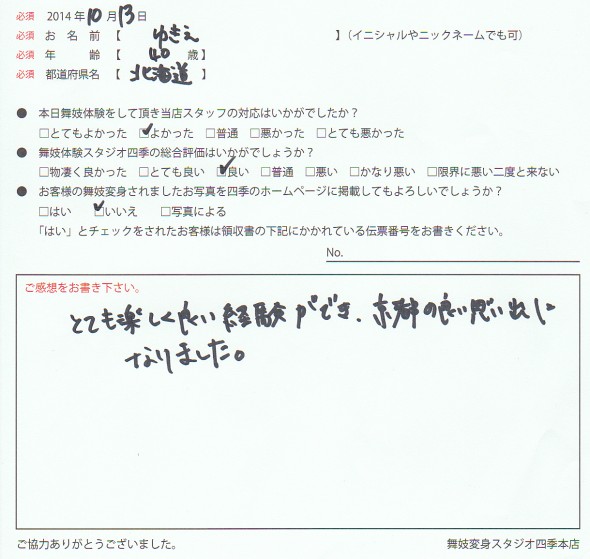 必須 2014年10月13日
必須 お名前【 ゆきえ 】(イニシャルやニックネームでも可)
必須 年齢【 40 歳】
必須 都道府県名【 北海道 】
● 本日舞妓体験をして頂き当店スタッフの対応はいかがでしたか？
□とてもよかった ☑よかった □普通 □悪かった □とても悪かった
● 舞妓体験スタジオ四季の総合評価はいかがでしょうか？
□物凄く良かった □とても良い ☑良い □普通 □悪い □かなり悪い □限界に悪い二度と来ない
● お客様の舞妓変身されましたお写真を四季のホームページに掲載してもよろしいでしょうか？
□はい ☑いいえ □写真による
「はい」とチェックをされたお客様は領収書の下記にかかれている伝票番号をお書きください。
No.
ご感想をお書き下さい。
とても楽しく良い経験ができ、京都の良い思い出に
なりました。
ご協力ありがとうございました。 舞妓変身スタジオ四季本店